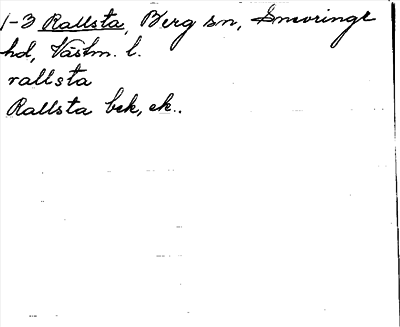 1-3 Rallsta, Berg sn, Snevringe
hd, Västm. l.
rallsta
Rallsta bek, ek..